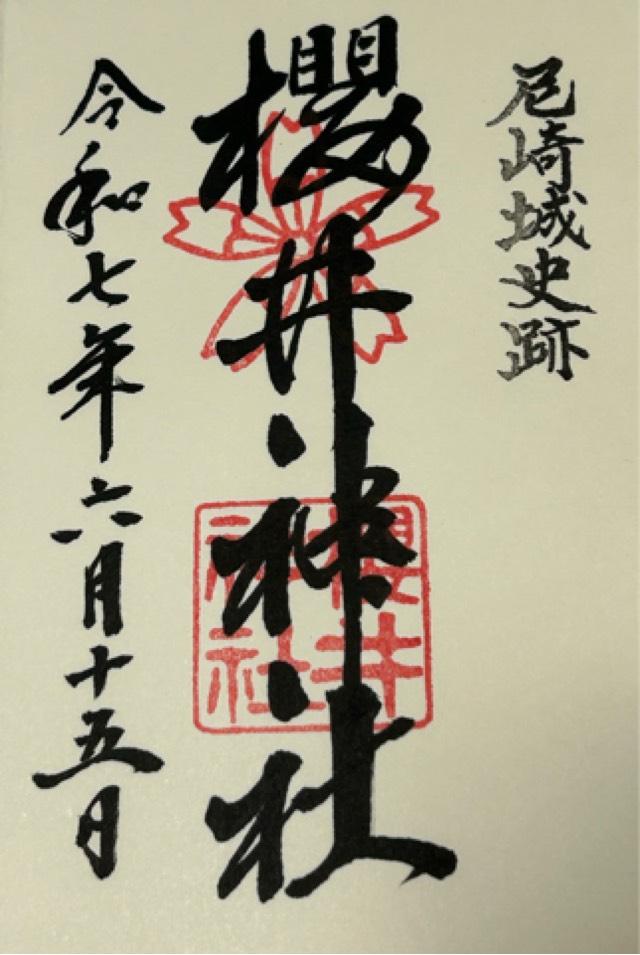 尼崎城史跡
櫻井神社
櫻井
神社
令和七年六月十五日